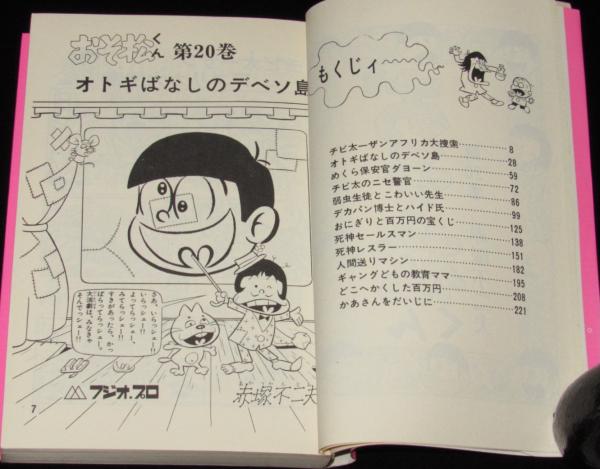 おそ松くん 第20巻
オトギばなしのデベソ島
さあ、いらっシェー!!
いらっシェー!!
よってらっシェー、
みてらっシェー!!
すきがあったら、かっ
ぱらってらっシェー!!
大活劇は、みなきゃ
そんでっシェー!!
フジオ・プロ
赤塚不二夫
7
もくじィ
チビ太ーザンアフリカ大捜索 8
オトギばなしのデベソ島 28
めくら保安官ダヨーン 59
チビ太のニセ警官 72
弱虫生徒とこわいい先生 86
デカパン博士とハイド氏 99
おにぎりと百万円の宝くじ 125
死神セールスマン 138
死神レスラー 151
人間送りマシン 182
ギャングどもの教育ママ 195
どこへかくした百万円 208
かあさんをだいじに 221